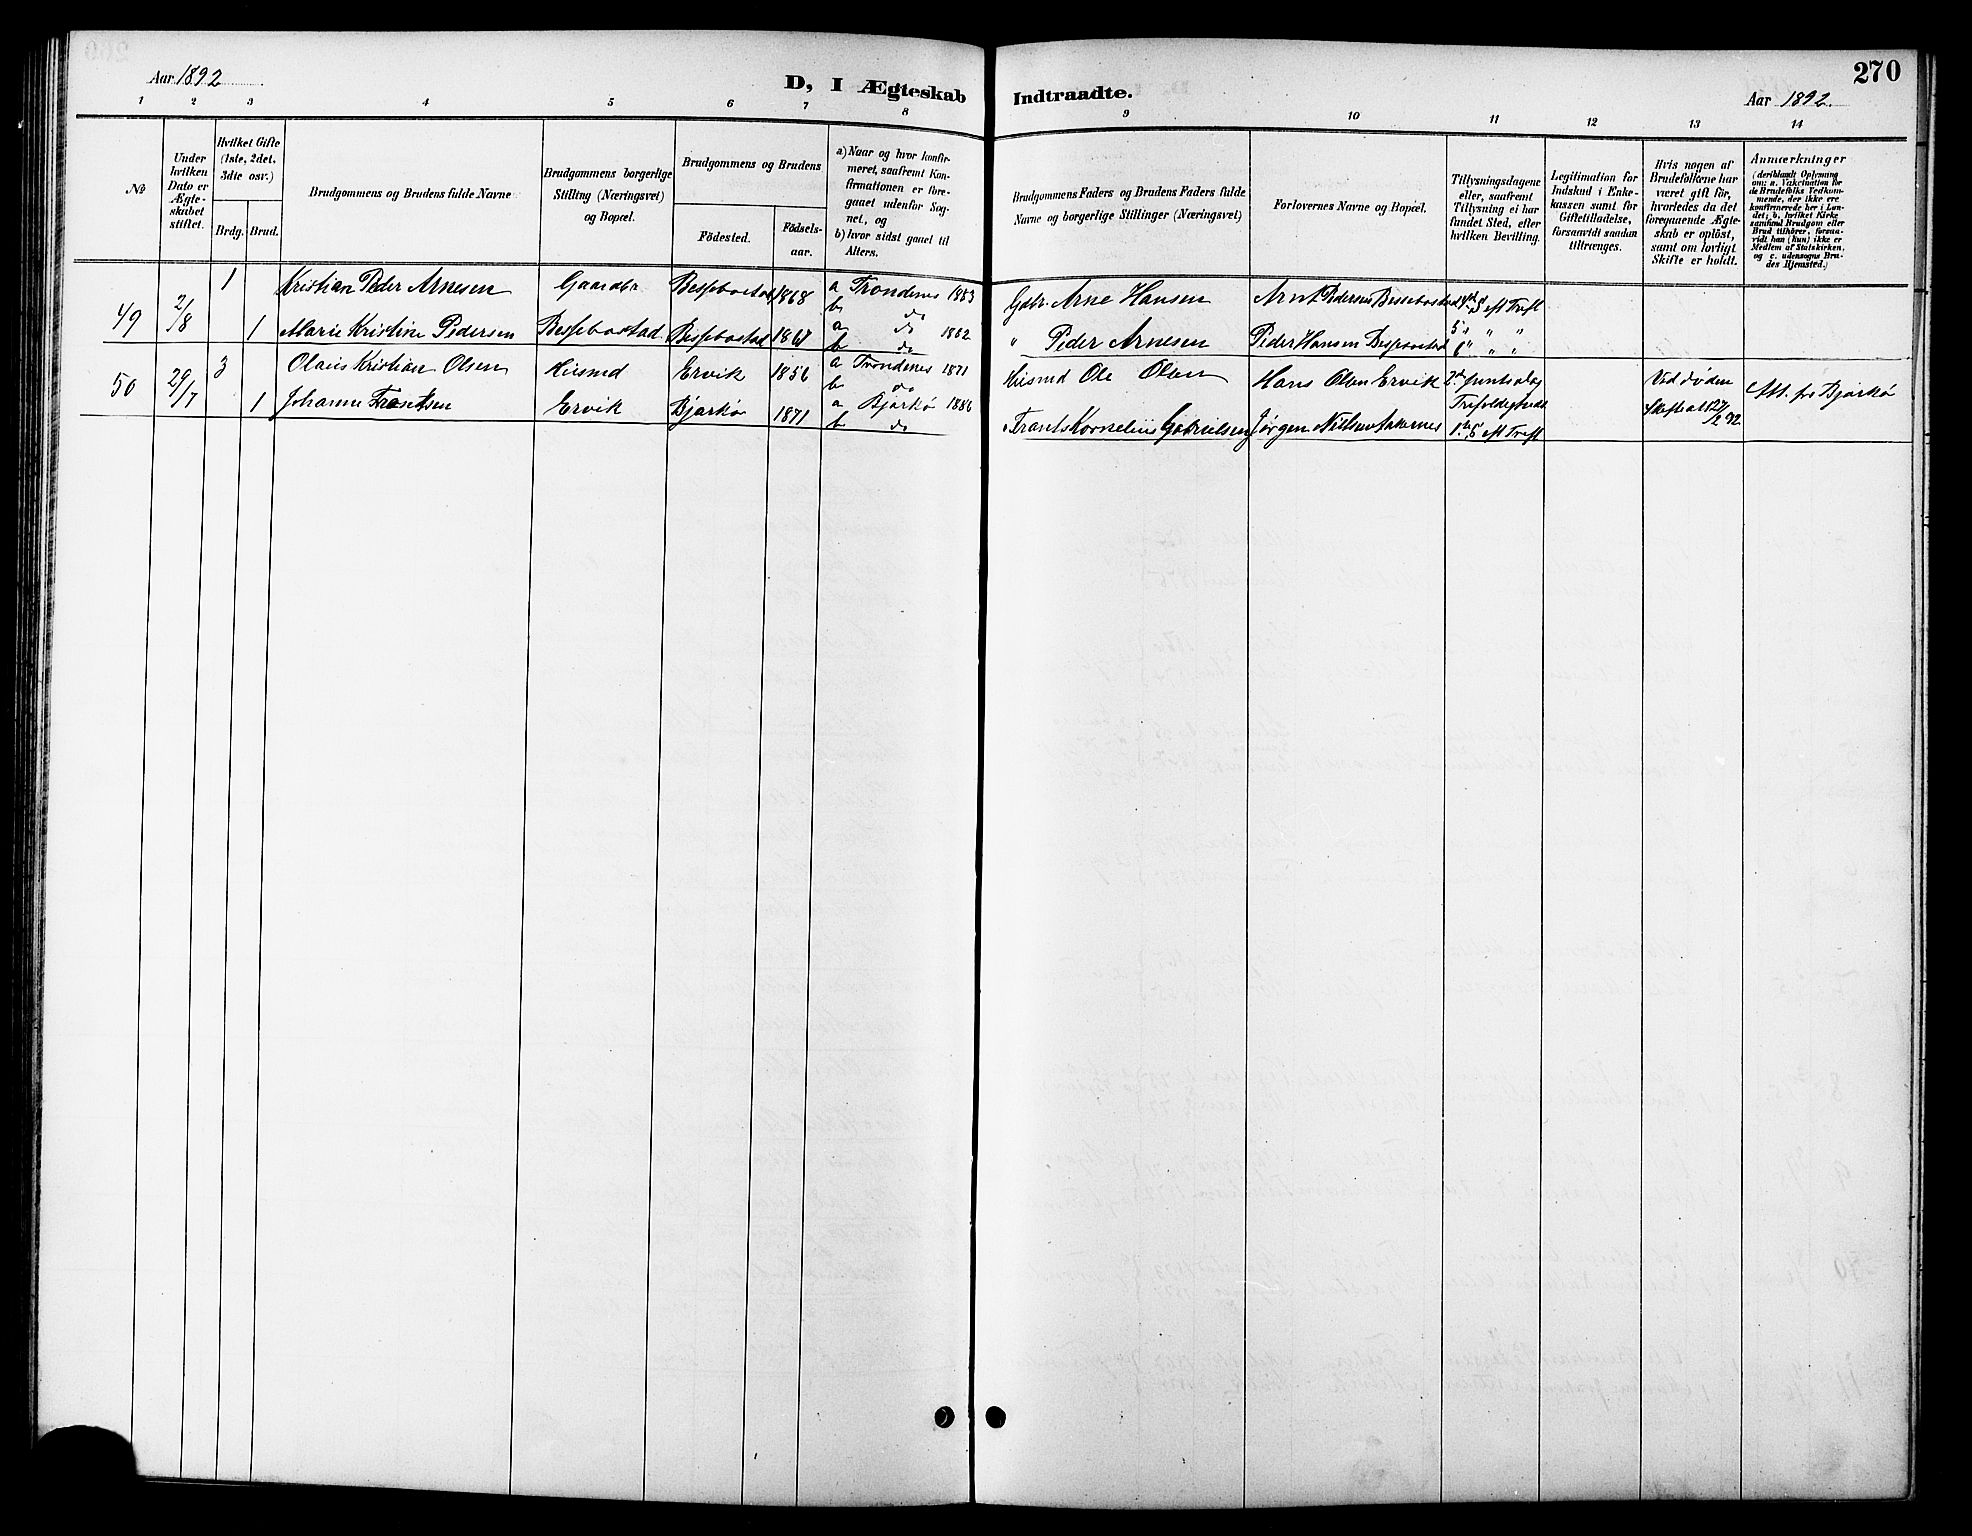 270
Aar 1892
D, I Ægteskab
Indtraadte.
Aar 1892.
1 2 3 4 5 6 7 8
9 10 11 12 13 14
No
Under
hvilken
Dato er
Ægte-
skabet
stiftet.
Hvilket Gifte
(1ste, 2det,
3dte osv.)
Brdg. Brud.
Brudgommens og Brudens fulde Navne
Brudgommens borgerlige
Stilling (Næringsvei)
og Bopæl.
Brudgommens og Brudens
Födested.
Födsels-
aar.
a) Naar og hvor konfir-
meret, saafremt Kon-
firmationen er fore-
gaaet udenfor Sog-
net, og
b) hvor sidst gaaet til
Alters.
Brudgommens Faders og Brudens Faders fulde
Navne og borgerlige Stillinger (Næringsvei)
Forlovernes Navne og Bopæl.
Tillysningsdagene
eller, saafremt
Tillysning ei har
fundet Sted, efter
hvilken Bevilling.
Legitimation for
Indskud i Enke-
kassen samt for
Giftetilladelse,
forsaavidt saadan
tiltrænges.
Hvis nogen af
Brudefolkene har
været gift för,
hvorledes da det
foregaaende Ægte-
skab er oplöst,
samt om lovligt
Skifte er holdt.
Anmærkninger
(deriblandt Oplysning
om: a. Vakcination for
de Brudefolks Vedkom-
mende, der ikke ere
konfirmerede her i Lan-
det; b. hvilket Kirke-
samfund Brudgom eller
Brud tilhörer, forsaa-
vidt han (hun) ikke er
Medlem af Statskirken,
og c. udensogns Bru-
des Hjemsted.)
49 2/8 1 Kristian Peder Arnesen Gaardbr Bessebostad 1868 a Trondenes 1883
b do
1 Marie Kristine Pedersen Bessebostad Bessebostad 1867 a do 1882
b do
Gbr. Arne Hansen Arnt Pedersen Bessebostad 4de S eft Tref
5" " "
" Peder Arnesen Peder Hansen Bessebostad 6" " "
50 29/7 3 Olaus Kristian Olsen Husmd Ervik 1856 a Trondenes 1871
b do
1 Johanne Frantsen Ervik Bjarkö 1871 a Bjarkö 1886
b do
Husmd Ole Olsen Hans Olsen Ervik 2d Juntsdag Ved döden Att. fra Bjarkö
Trefoldigheds
Frants Kornelius Gabrielsen Jörgen Nilsen 1ste S eft Tref